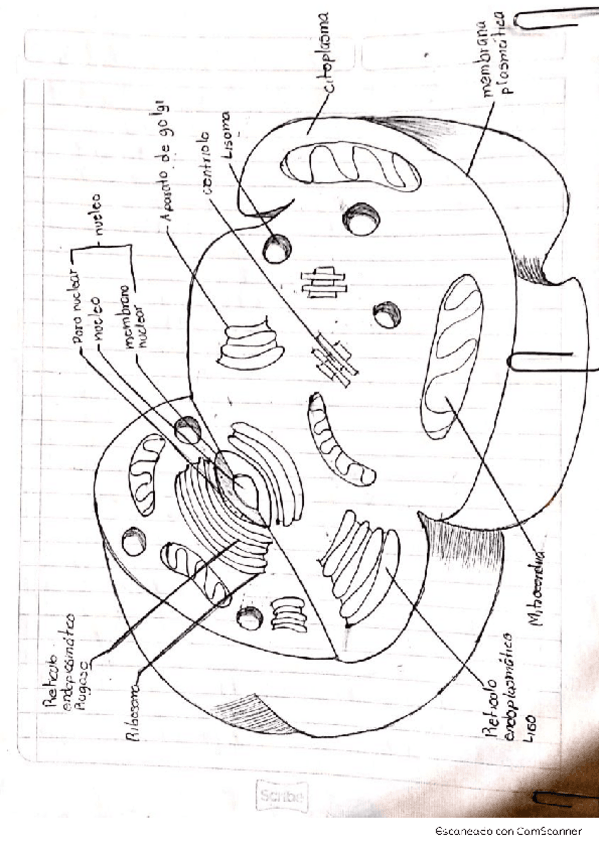 Poro nuclear
nucleo
nucleo
membrana
nuclear
Aparato de golgi
centriolo
Lisoma
citoplasma
membrana
plasmática
Reticulo
endoplasmático
Rugoso
Ribosoma
Reticulo
endoplasmático
Liso
Mitocondria
Scribe
Escaneado con CamScanner